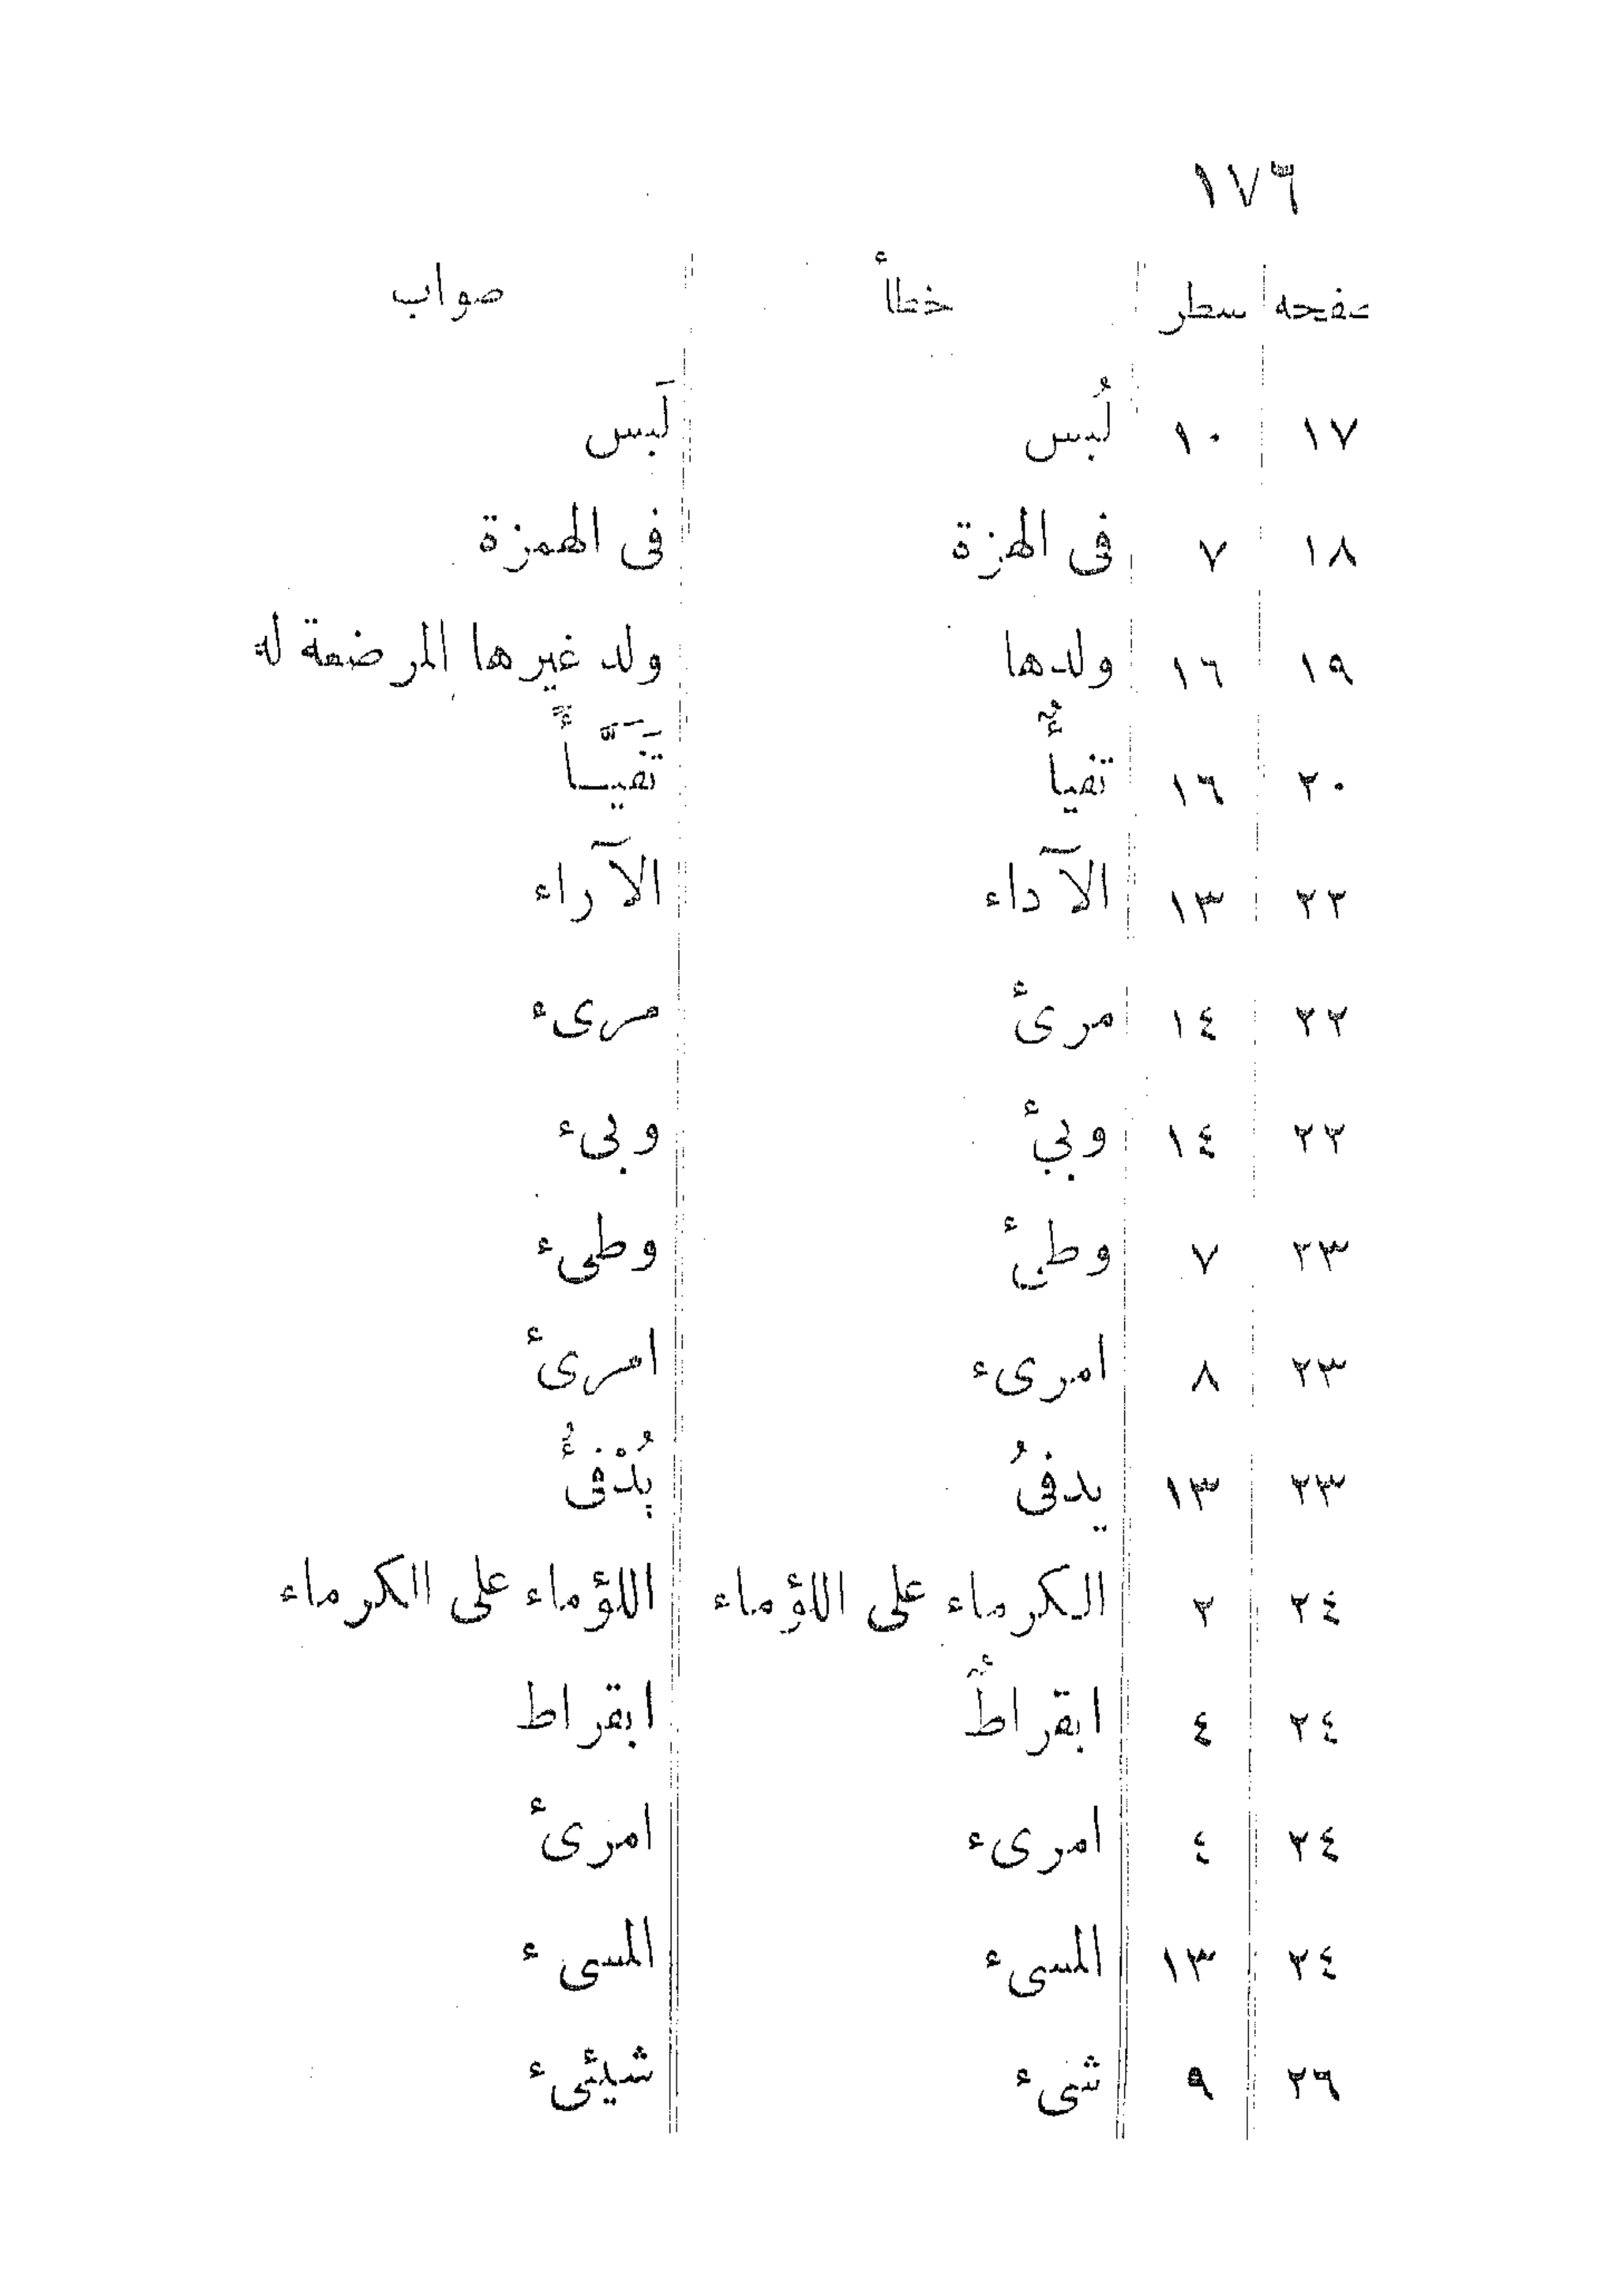 ١٧٦
صفحه سطر خطأ صواب
١٧ ١٠ لُبس لَبس
١٨ ٧ فى الهزة فى الهمزة
١٩ ١٦ ولدها ولد غيرها المرضعة له
٢٠ ١٦ تفيأٌ تَفَيَّأً
٢٢ ١٣ الآداء الآراء
٢٢ ١٤ مرئ مرىء
٢٢ ١٤ وبئ وبىء
٢٣ ٧ وطئ وطىء
٢٣ ٨ امرىء امرئ
٢٣ ١٣ يدفىُ يُدْفئُ
٢٤ ٢ الكرماء على اللؤماء اللؤماء على الكرماء
٢٤ ٤ ابقراط ابقراط
٢٤ ٤ امرىء امرئ
٢٤ ١٣ المسىء المسىء
٢٦ ٩ شىء شيئىء